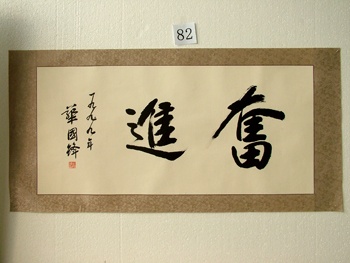 82
奮進
一九九九年
華國鋒